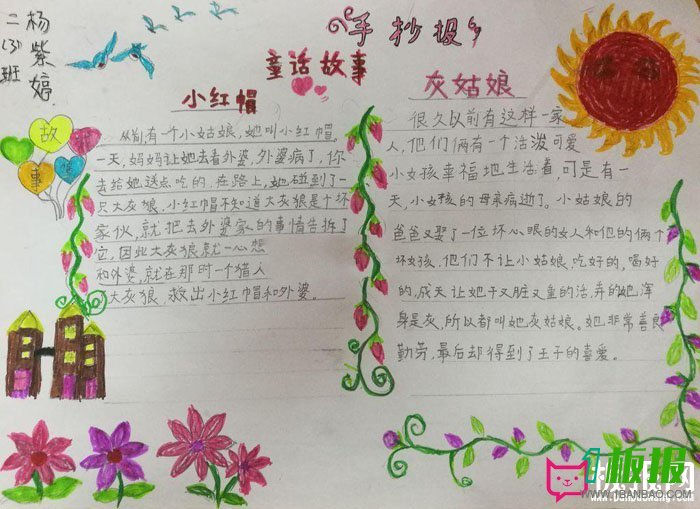 杨紫婷
二(3)班
手抄报
童话故事
故事
小红帽
从前,有一个小姑娘,她叫小红帽。
一天,妈妈让她去看外婆,外婆病了,你
去给她送点吃的,在路上,她碰到了一
只大灰狼,小红帽不知道大灰狼是个坏
家伙,就把去外婆家的事情告拆了
它,因此大灰狼就一心想
和外婆,就在那时一个猎人
大灰狼,救出小红帽和外婆。
灰姑娘
很久以前有这样一家
人,他们俩有一个活泼可爱
小女孩幸福地生活着,可是有一
天,小女孩的母亲病逝了。小姑娘的
爸爸又娶了一位坏心眼的女人和他的俩个
坏女孩.他们不让小姑娘,吃好的,喝好
的,成天让她干又脏又重的活,弄的她浑
身是灰,所以都叫她灰姑娘。她非常善良
勤劳,最后却得到了王子的喜爱。
板报
WWW.1BANBAO.COM